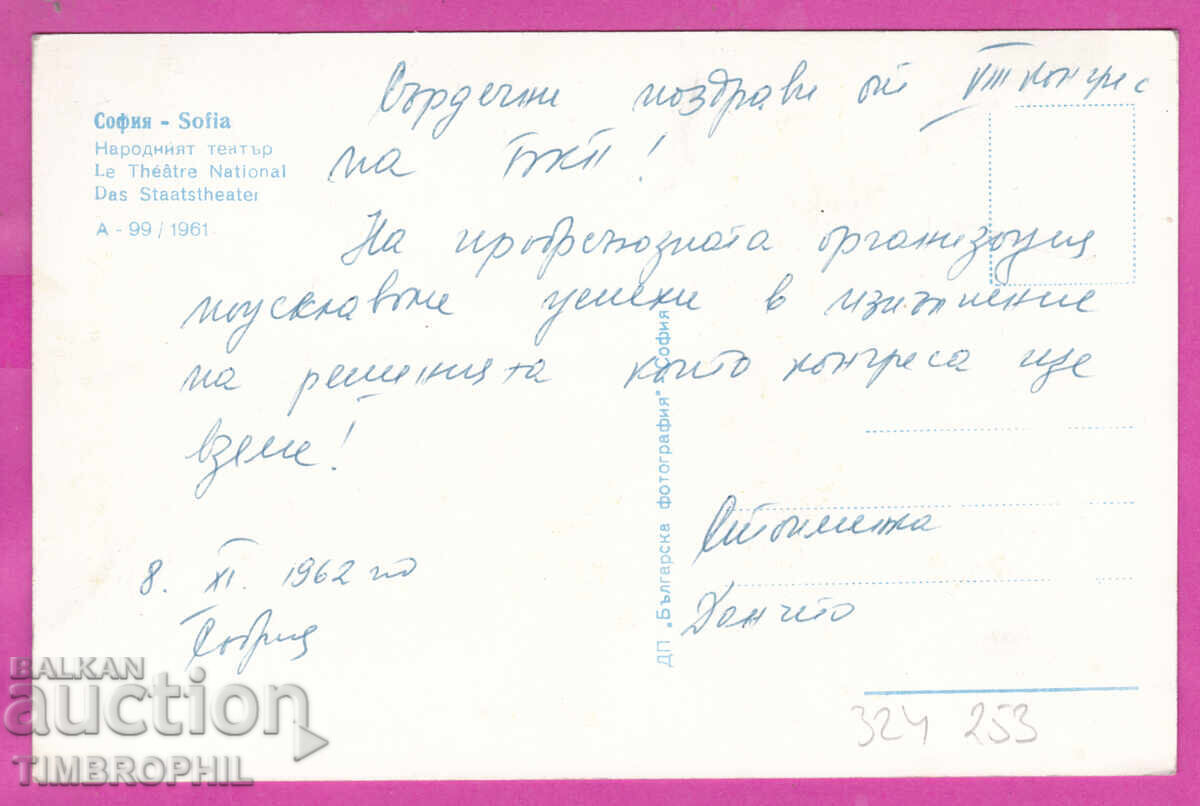 София - Sofia
Народният театър
Le Théâtre National
Das Staatstheater
А - 99 / 1961
Сърдечни поздрави от VIII конгрес
на БКП!
На профсъюзната организация
пожелаваме успехи в изпълнение
на решенията които конгреса ще
вземе!
8. XI. 1962 го
София
Стоименка
Дончето
ДП „Българска фотография" София
324 253
BALKAN
auction
TIMBROPHIL